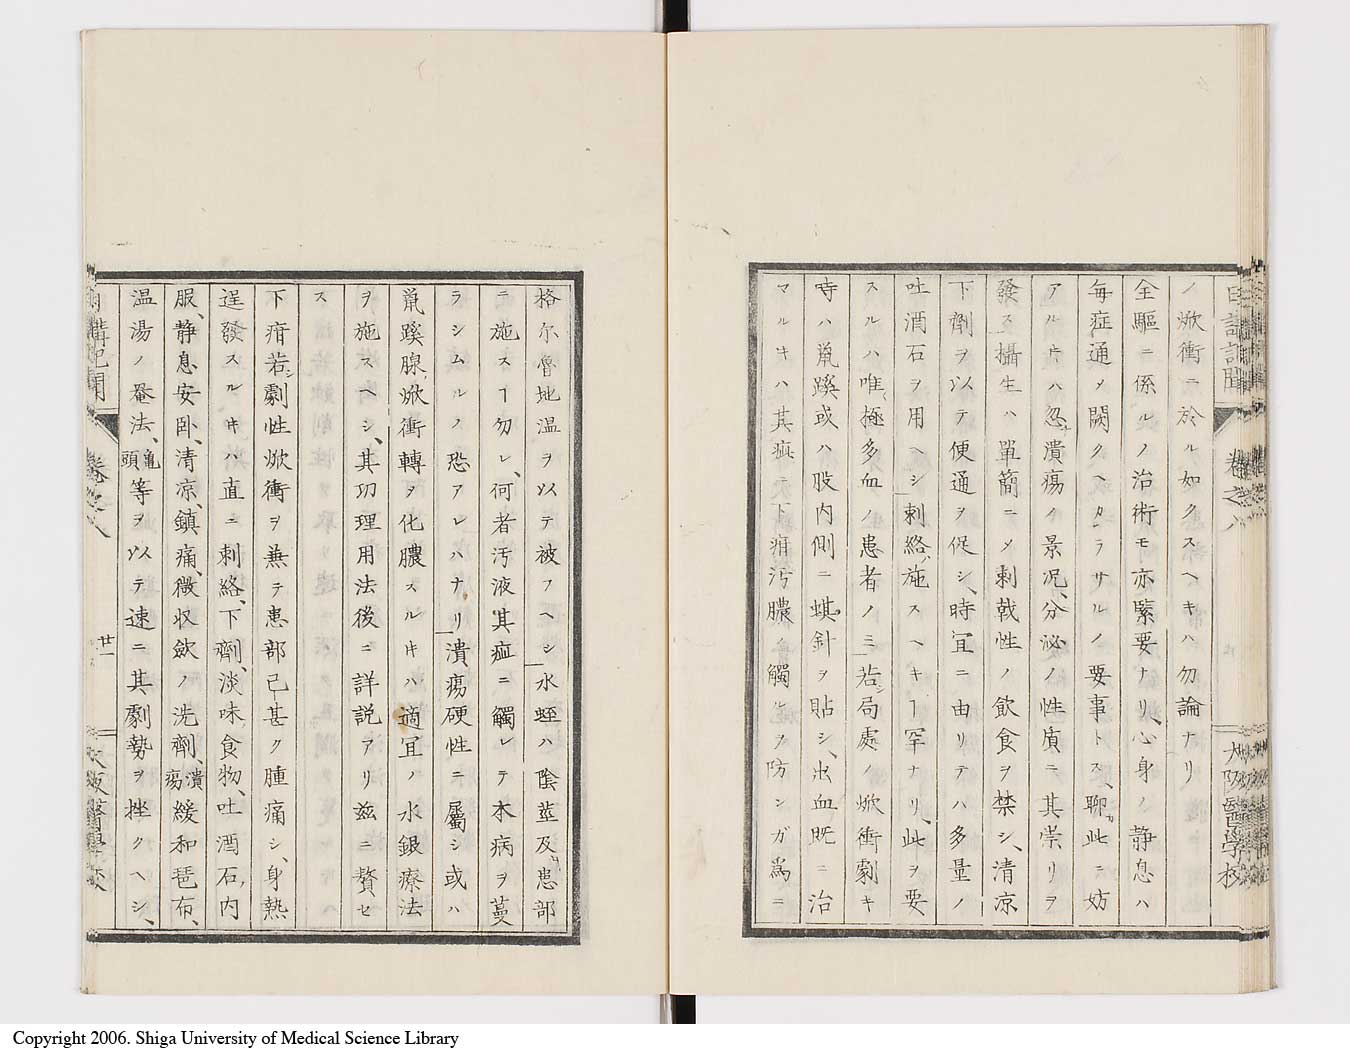 ノ焮衝ニ於ル如クスヘキハ勿論ナリ
全軀ニ係ルノ治術モ亦緊要ナリ、心身ノ静息ハ
毎症通〆闕クヘカラサルノ要事トス、聊カ此ニ妨
アル𪜈ハ忽チ潰瘍ノ景況、分泌ノ性質ニ其祟リヲ
發ス攝生ハ單簡ニ〆刺戟性ノ飲食ヲ禁シ、清凉
下劑ヲ以テ便通ヲ促シ、時冝ニ由リテハ多量ノ
吐酒石ヲ用ヘシ刺絡、施スヘキヿ罕ナリ、此ヲ要
スルハ唯、極多血ノ患者ノミ若シ局處ノ焮衝劇キ
時ハ鼠蹊或ハ股内側ニ蜞針ヲ貼シ、出血既ニ治
マルキハ其痕ニ下疳汚膿ノ觸ルヲ防ンガ爲ニ
格尓魯地温ヲ以テ被フヘシ水蛭ハ陰莖及ヒ患部
ニ施スヿ勿レ、何者汚液其痕ニ觸レテ本病ヲ蔓
ラシムルノ恐アレハナリ潰瘍硬性ニ屬シ或ハ
鼠蹊腺、焮衝轉タ化膿スルキハ適冝ノ水銀療法
ヲ施スヘシ、其功理用法後ニ詳説アリ茲ニ贅セ
ス
下疳若シ劇性焮衝ヲ兼テ患部已甚ク腫痛シ、身熱
逞發スルキハ直ニ刺絡、下劑、淡味、食物、吐酒石、内
服、静息安卧、清凉、鎮痛、微収斂ノ洗劑、潰瘍緩和琶布、
温湯ノ罨法、龜頭等ヲ以テ速ニ其劇勢ヲ挫クヘシ、
卷之八
廿一
大阪醫學校
Copyright 2006. Shiga University of Medical Science Library